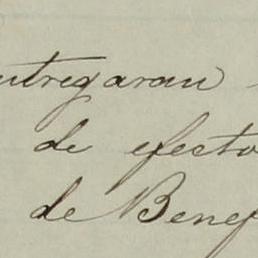 entregarau
de efecto
de Benef